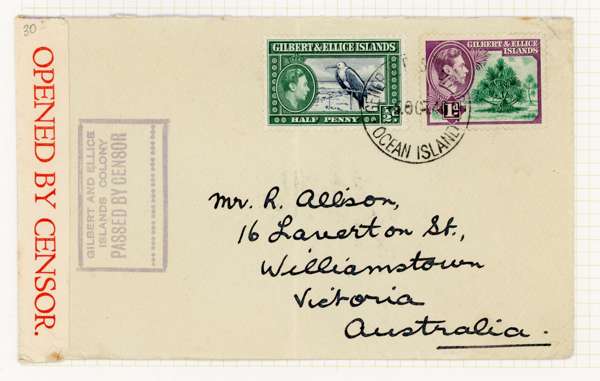 30
OPENED BY CENSOR.
GILBERT AND ELLICE
ISLANDS COLONY
PASSED BY CENSOR
GILBERT & ELLICE ISLANDS
HALF PENNY
1/2D
GILBERT & ELLICE
ISLANDS
1D
OCEAN ISLAND
Mr. R. Allison,
16 Laverton St.,
Williamstown
Victoria
Australia.